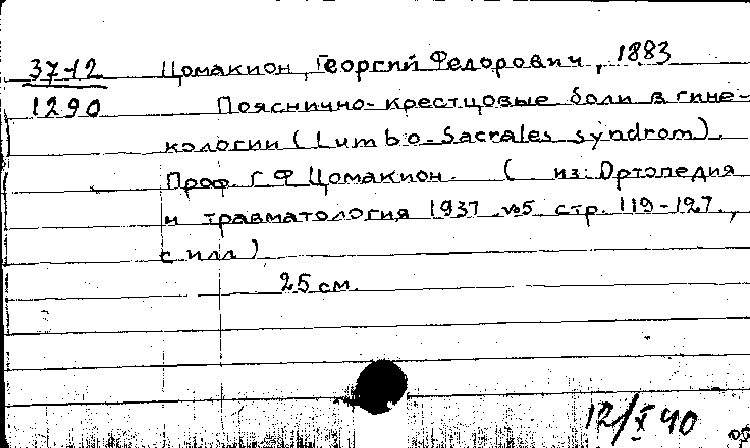 37-12 Цомакион, Георгий Федорович, 1883
1290 Пояснично-крестцовые боли в гине-
кологии (Lumbo-Sacrales syndrom).
Проф. Г. Ф. Цомакион. ( из: Ортопедия
и травматология 1937 №5 стр. 119-127.,
с илл)
25 см.
12/X 40